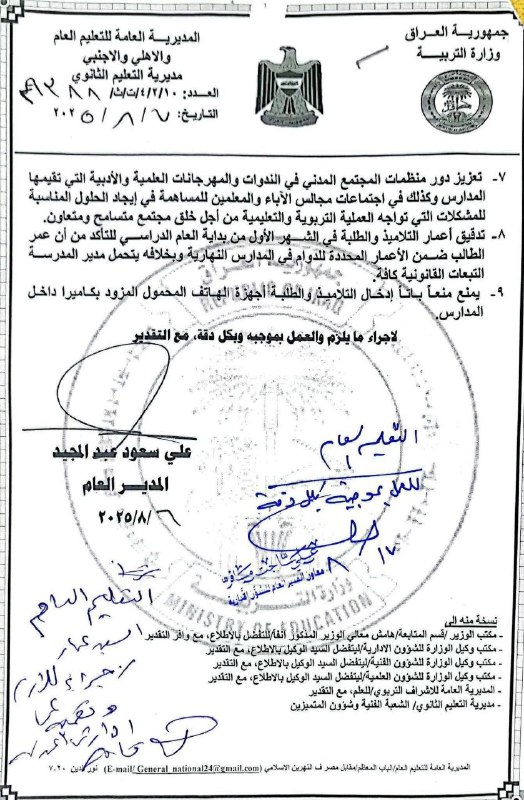 جمهورية العراق
وزارة التربية
المديرية العامة للتعليم العام
والاهلي والاجنبي
مديرية التعليم الثانوي
العدد: ١٠/٢/٤/ت/ث/
التاريخ: ٢٠٢٥/٨/
٧- تعزيز دور منظمات المجتمع المدني في الندوات والمهرجانات العلمية والأدبية التي تقيمها
المدارس وكذلك في اجتماعات مجالس الآباء والمعلمين للمساهمة في إيجاد الحلول المناسبة
للمشكلات التي تواجه العملية التربوية والتعليمية من أجل خلق مجتمع متسامح ومتعاون.
٨- تدقيق أعمار التلاميذ والطلبة في الشهر الأول من بداية العام الدراسي للتأكد من أن عمر
الطالب ضمن الأعمار المحددة للدوام في المدارس النهارية وبخلافه يتحمل مدير المدرسة
التبعات القانونية كافة.
٩- يمنع منعاً باتاً إدخال التلاميذ والطلبة أجهزة الهاتف المحمول المزود بكاميرا داخل
المدارس.
لاجراء ما يلزم والعمل بموجبه وبكل دقة، مع التقدير
علي سعود عبد المجيد
المدير العام
٢٠٢٥/٨/٦
التعليم العام
للعمل بموجبه بكل دقة
٨/١٧
MINISTRY OF EDUCATION
نسخة منه الى
- مكتب الوزير/قسم المتابعة/هامش معالي الوزير المذكور آنفا/للتفضل بالاطلاع، مع وافر التقدير
- مكتب وكيل الوزارة للشؤون الادارية/ليتفضل السيد الوكيل بالاطلاع، مع التقدير
- مكتب وكيل الوزارة للشؤون الفنية/ليتفضل السيد الوكيل بالاطلاع، مع التقدير
- مكتب وكيل الوزارة للشؤون العلمية/ليتفضل السيد الوكيل بالاطلاع، مع التقدير
- المديرية العامة للاشراف التربوي/للعلم، مع التقدير
- مديرية التعليم الثانوي/ الشعبة الفنية وشؤون المتميزين
التعليم العام
المديرية العامة للتعليم العام/الباب المعظم/مقابل مصرف النهرين الاسلامي (E-mail/_General_national24@gmail.com) نور الدين ٧.٢٠